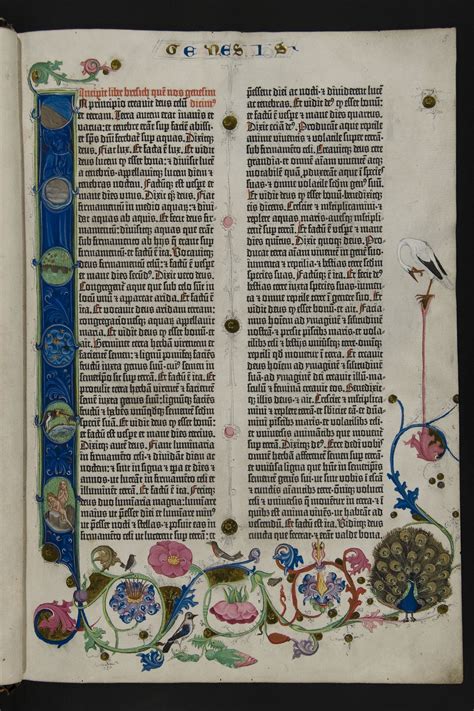 GENESIS
Incipit liber bresith quē nos genesim
In principio creavit deus celū dicim⁹
et terram. Terra autem erat inanis et
vacua: et tenebre erāt sup faciē abissi:
et sp̄s dn̄i ferebat̄ sup aquas. Dixitq̄
deus. Fiat lux. Et facta ē lux. Et vidit
deus lucem ꝙ esset bona: et divisit lucē
a tenebris·appellavitq̄ lucem diem et
tenebras noctem. Factūq̄ est vespe et
mane dies unus. Dixit q̄ deus. Fiat
firmamentū in medio aquarū: et divi-
dat aquas ab aquis. Et fecit deus fir-
mamentū: divisitq̄ aquas que erāt
sub firmamento ab hijs q̄ erant sup
firmamentū: et factū ē ita. Vocavitq̄
deus firmamentū celū: et factū ē vespe
et mane dies secūd⁹. Dixit vero deus.
Congregent̄ aque que sub celo sūt in
locū unū et appareat arida. Et factū ē
ita. Et vocavit deus aridam terram:
congregacionesq̄ aquaꝝ appellavit
maria. Et vidit deus ꝙ esset bonū
et ait. Germinet terra herbā virentem et
facientē semen: et lignū pomiferū faciēs
fructū iuxta genus suū
semetipso sit sup terrā. Et factū ē ita. Et
protulit terra herbā virentē et facientē
semē iuxta genus suū: lignūq̄ faciēs
fructū et habēs unūqdq̄ sementē scdm
speciē suā. Et vidit deus ꝙ esset bonū:
et factū est vespe et mane dies tercius.
Dixit aūt deus. Fiant luminaria
in firmamēto celi·et dividāt diem ac
noctem: et sint in signa et tpa et dies et
annos: ut luceāt in firmamēto celi et
illuminēt terrā. Et factū ē ita. Fecitq̄
deus duo luminaria magna: lumiare
maius ut pesset diei et lumiare min⁹
ut pesset nocti: et stellas·et posuit eas in
firmamēto celi ut lucerent sup terrā: et
pessent diei ac nocti: et dividerent lucē
ac tenebras. Et vidit de⁹ ꝙ esset bonū:
et factū ē vespe et mane dies quartus.
Dixit eciā de⁹. Producāt aque reptile
anime viventis et volatile super terrā:
sub firmamēto celi. Creavitq̄ deus cete
grandia·et omnē aīam viventē atq̄
motabilē quā produxerāt aque ī species
suas: et omne volatile scdm gen⁹ suū.
Et vidit deus ꝙ esset bonū: benedixitq̄
eis dicens. Crescite et mltiplicamini·et
replete aquas maris: avesq̄ mltipli-
cent sup terrā. Et factū ē vespe et mane
dies quintus. Dixit quoq̄ deus. Pro-
ducat terra aīam viventē in gene suo:
iumenta et reptilia·et bestias terre scdm
species suas. Factūq̄ ē ita. Et fecit de⁹
bestias terre iuxta species suas: iumen-
ta et omne reptile terre ī genere suo. Et
vidit deus ꝙ esset bonū: et ait. Facia-
mus hoīem ad ymaginē et silitudinē
nostrā: et presit piscib⁹ maris·et vola-
tilib⁹ celi et bestijs
repili qd movetur ī terra. Et creavit
deus hoīem ad ymaginē et silitudinē
suā: ad ymaginem dei creavit illū: ma-
sculū et feminā creavit eos. Benedixitq̄
illis deus·et ait. Crescite et mltiplica-
mini et replete terrā·et subicite eā: et dn̄a-
mini piscib⁹ maris·et volatilib⁹ celi·
et universis animātibus que moventur
sup terrā. Dixitq̄ de⁹. Ecce dedi vobis
omnē herbā afferentē semen sup terrā·
et univsa ligna que hn̄t in semetipis
sementē genēis sui: ut sint vobis ī escā·
et cunctis aīantib⁹ terre·omīq̄ volucri
celi et universis q̄ movētur in terra·et ī
quib⁹ est anima vivēs: ut habeāt ad
vescendū. Et factū est ita. Viditq̄ deus
cuncta que fecerat·et erāt valde bona.